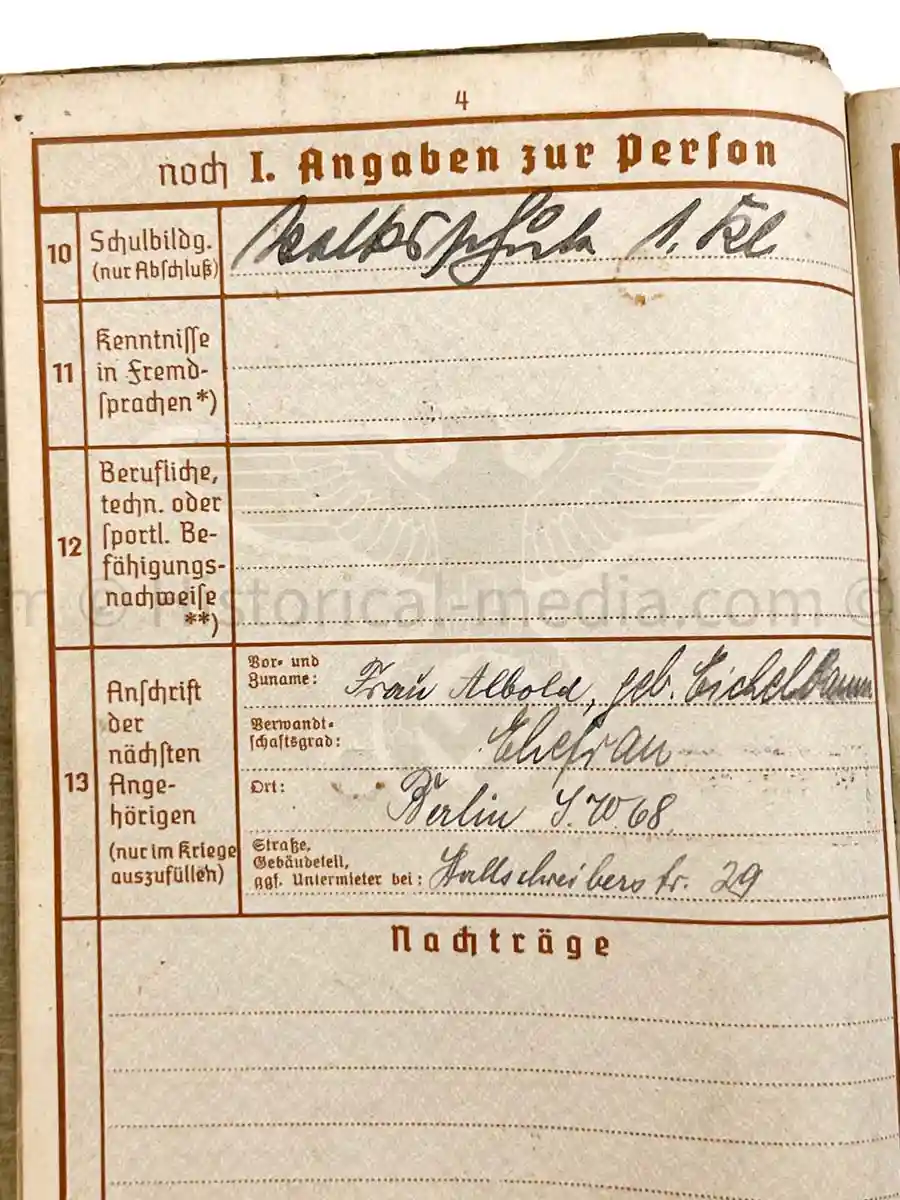 4
noch I. Angaben zur Person
10 Schulbildg. (nur Abschluß)
Volksschule 1. Kl
11 Kenntnisse
in Fremd-
sprachen *)
12 Berufliche,
techn. oder
sportl. Be-
fähigungs-
nachweise
**)
13 Anschrift
der
nächsten
Ange-
hörigen
(nur im Kriege
auszufüllen)
Vor- und
Zuname: Frau Albold, geb. Eichelbaum
Verwandt-
schaftsgrad: Ehefrau
Ort: Berlin S.W.68
Straße,
Gebäudeteil,
ggf. Untermieter bei: Wallschreiberstr. 29
Nachträge
© historical-media.com ©